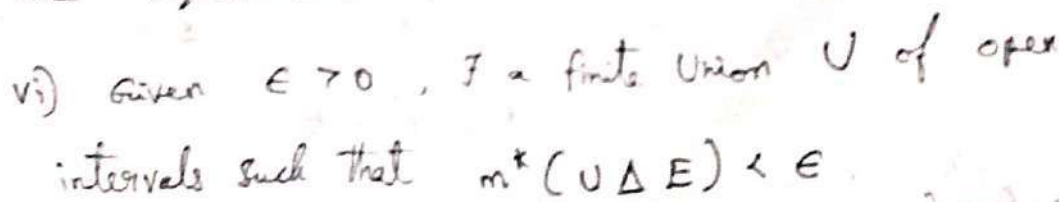 vi) Given ∈ > 0, ∃ a finite Union U of open
intervals such that m*(U Δ E) < ∈.